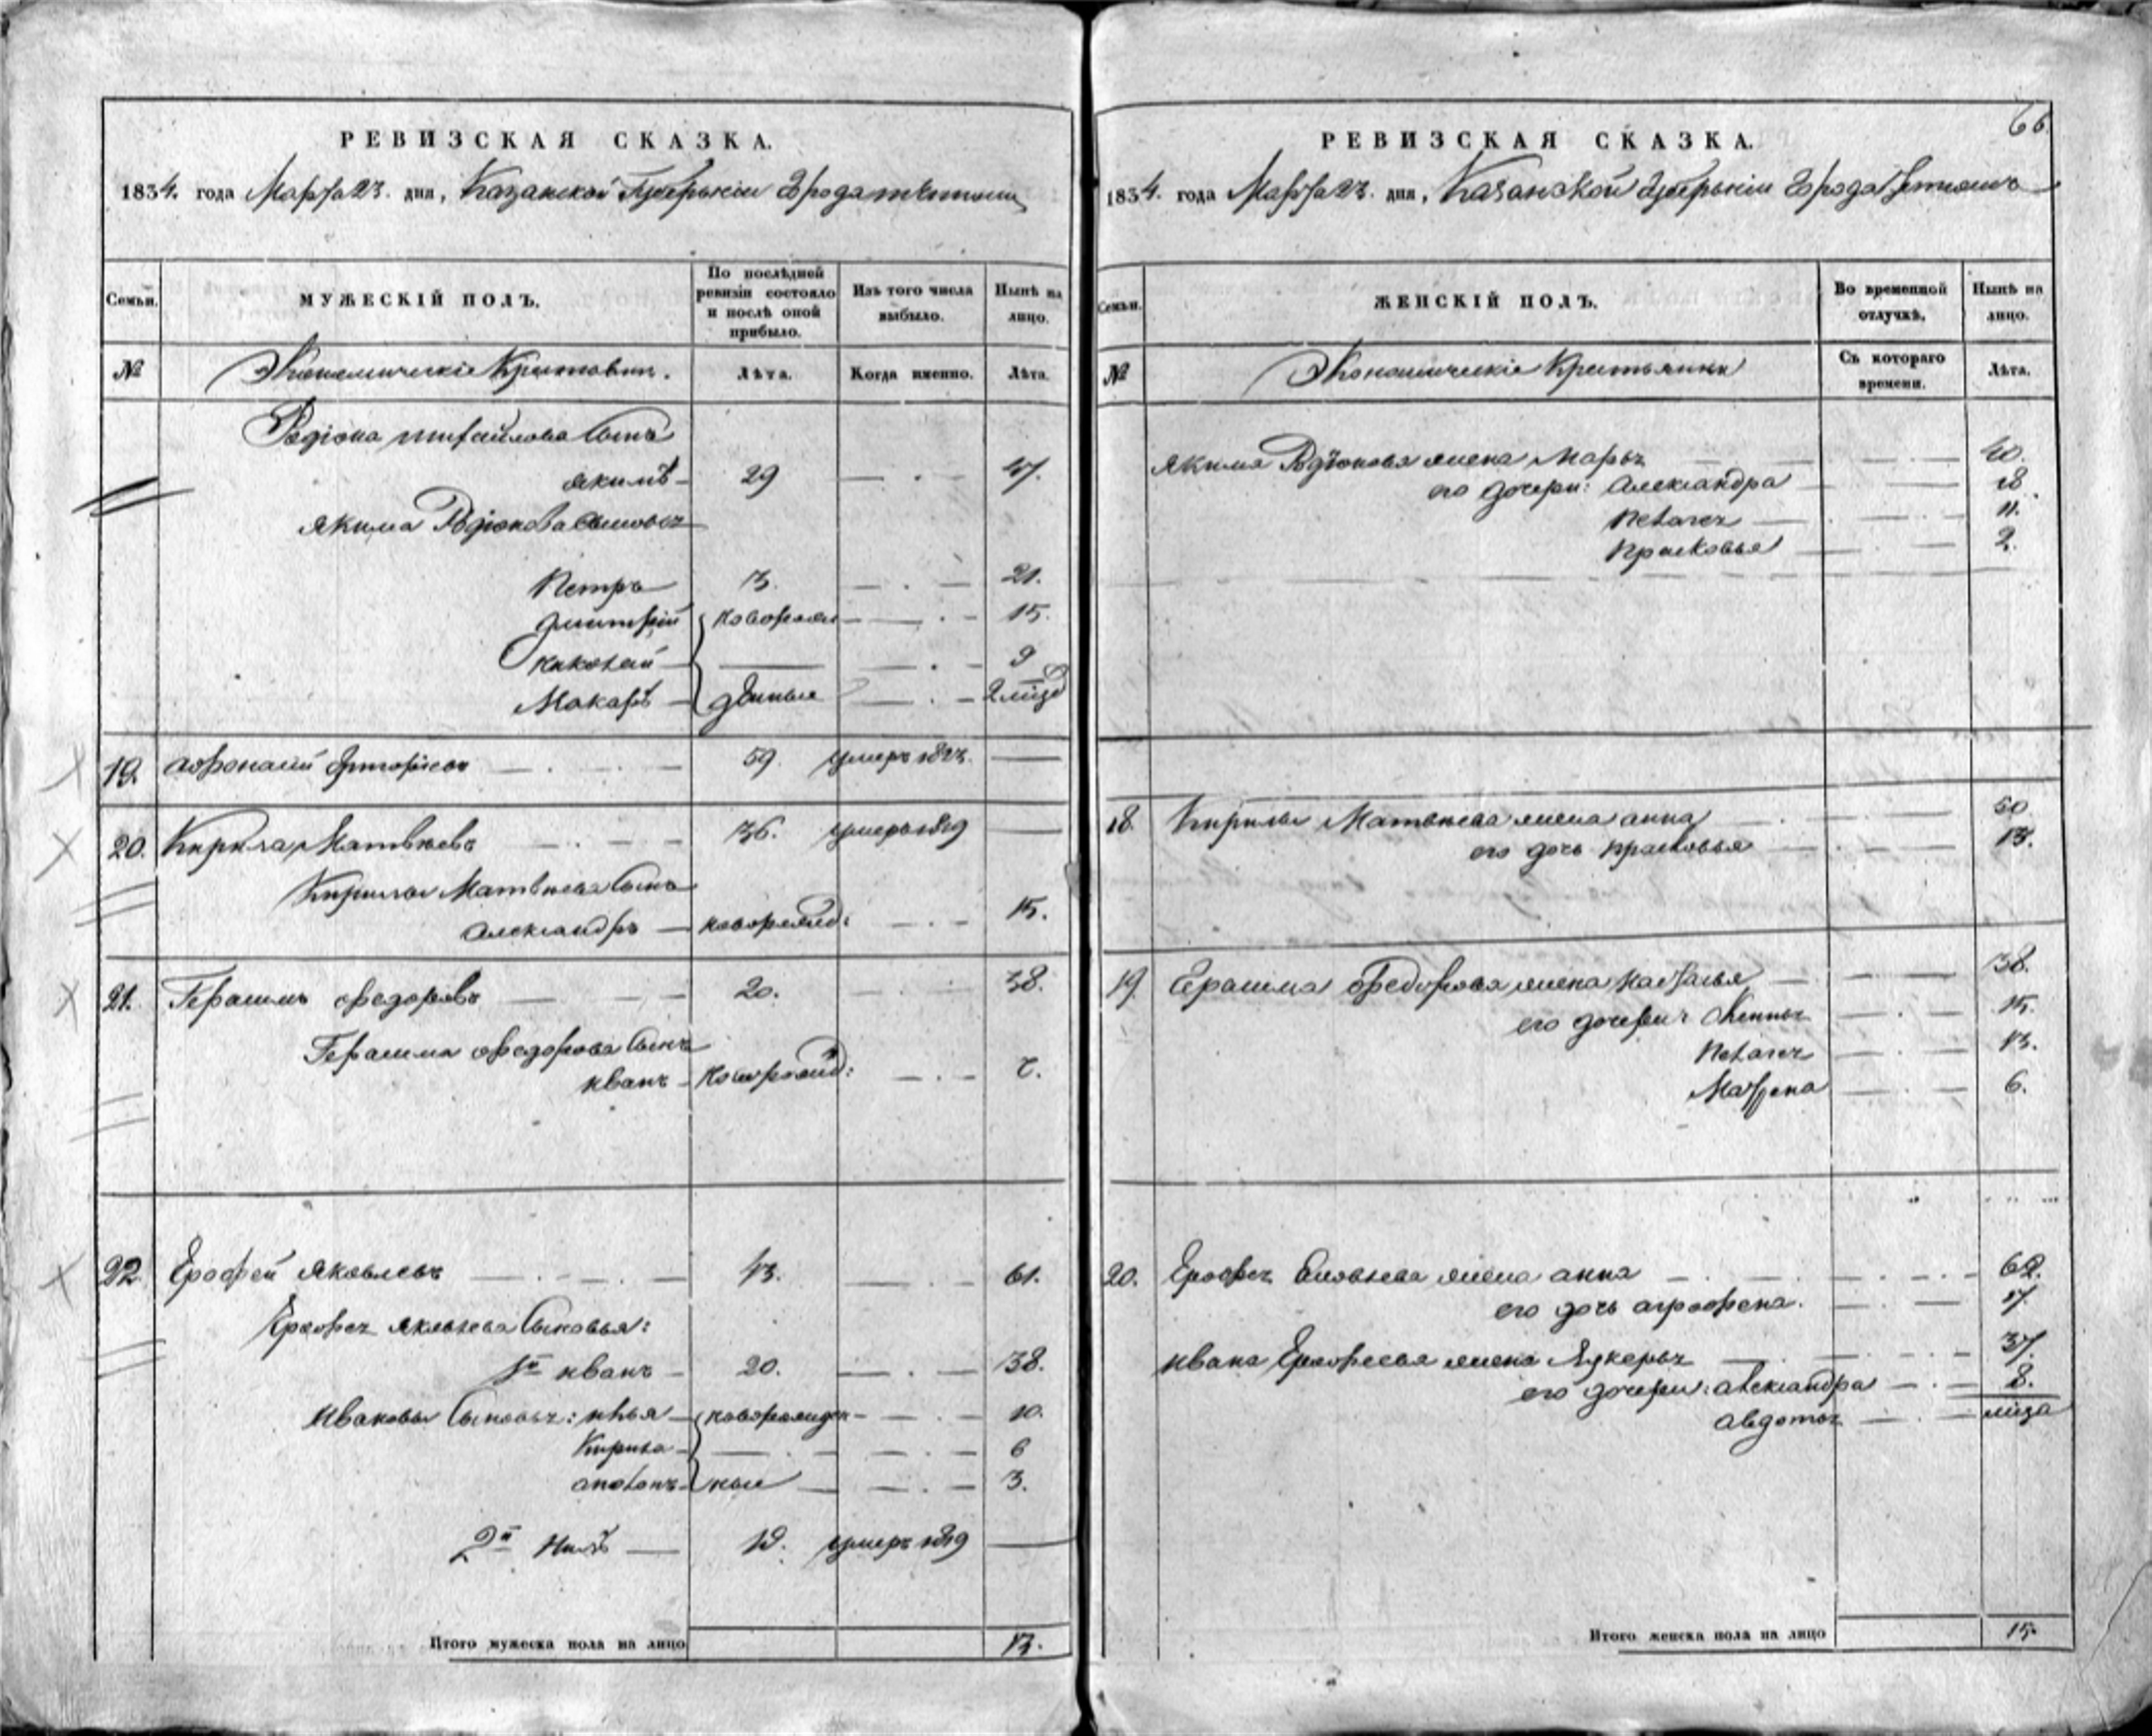 РЕВИЗСКАЯ СКАЗКА.
1834. года Марта 23. дня, Казанской Губерніи Города Тетюшъ
Семьи.
МУЖЕСКІЙ ПОЛЪ.
По послѣдней ревизіи состояло и послѣ оной прибыло.
Изъ того числа выбыло.
Нынѣ на лицо.
№
Экономическіе
Лѣта.
Когда именно.
Лѣта.
Родіона Михайлова Сынъ
Якимъ 29 47.
Якима Родіонова Сыновья
Петръ 13. 21.
Дмитрій новорож 15.
Николай 9
Макаръ денные
19. Афонасій 59. умеръ
20. Кирила Матвѣевъ 36. умеръ 1819
Кирилы Матвѣева Сынъ
Александръ новорожд: 15.
21. Герасимъ Федоровъ 20. 38.
Герасима Федорова Сынъ
Иванъ новорожд:
22. Ерофей Яковлевъ 43. 61.
Ерофея Яковлева Сыновья:
1й Иванъ 20. 38.
Ивановы Сыновья: Илья новорожден 10.
Кирила 6
Антонъ ные 3.
2й умеръ 1819
Итого мужеска пола на лицо 13.
66.
РЕВИЗСКАЯ СКАЗКА.
1834. года Марта 23. дня, Казанской Губерніи Города Тетюшъ
Семьи.
ЖЕНСКІЙ ПОЛЪ.
Во временной отлучкѣ.
Нынѣ на лицо.
№
Экономическіе Крестьянки
Съ котораго времени.
Лѣта.
Якима Родіонова жена Марья 40.
его дочери: Александра 18
Пелагея 11.
Прасковья 2.
18. Кирилы Матвѣева жена Анна 50
его дочь Прасковья 13.
19. Ерасима Федорова жена Наталья 38.
его дочери: 15.
Пелагея 13.
Матрена 6.
20. Ерофея жена Анна 62.
его дочь Аграфена. 17.
Ивана Ерофеева жена 37.
его дочери: Александра 8.
Авдотья
Итого женска пола на лицо 15.